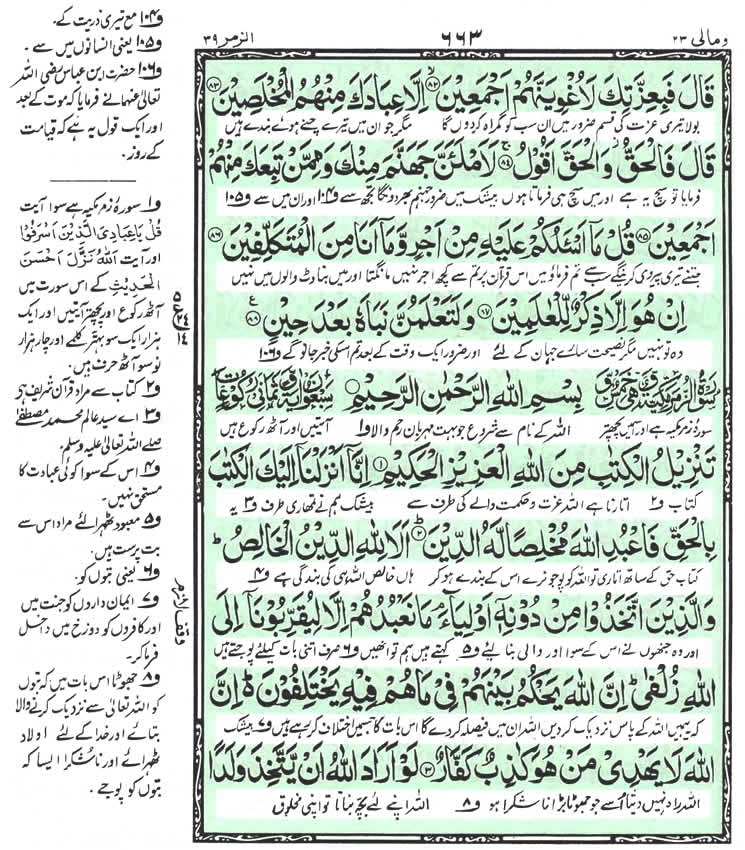 ومالی ۲۳
۶۶۳
الزمر ۳۹
قَالَ فَبِعِزَّتِكَ لَاُغْوِيَنَّهُمْ اَجْمَعِيْنَ ۸۲ اِلَّا عِبَادَكَ مِنْهُمُ الْمُخْلَصِيْنَ ۸۳
بولا تیری عزت کی قسم ضرور میں ان سب کو گمراہ کردوں گا مگر جو ان میں تیرے چنے ہوئے بندے ہیں
قَالَ فَالْحَقُّ وَالْحَقَّ اَقُوْلُ ۸۴ لَاَمْلَئَنَّ جَهَنَّمَ مِنْكَ وَمِمَّنْ تَبِعَكَ مِنْهُمْ
فرمایا تو سچ یہ ہے اور میں سچ ہی فرماتا ہوں بیشک میں ضرور جہنم بھردونگا تجھ سے و۱۰۴ اور ان میں سے و۱۰۵
اَجْمَعِيْنَ ۸۵ قُلْ مَاۤ اَسْئَلُكُمْ عَلَيْهِ مِنْ اَجْرٍ وَّمَاۤ اَنَا مِنَ الْمُتَكَلِّفِيْنَ ۸۶
جتنے تیری پیروی کرینگے سب سے تم فرماؤ میں اس قرآن پر تم سے کچھ اجر نہیں مانگتا اور میں بناوٹ والوں میں نہیں
اِنْ هُوَ اِلَّا ذِكْرٌ لِّلْعٰلَمِيْنَ ۸۷ وَلَتَعْلَمُنَّ نَبَاَهٗ بَعْدَ حِيْنٍ ۸۸
وہ تو نہیں مگر نصیحت سارے جہان کے لئے اور ضرور ایک وقت کے بعد تم اسکی خبر جانو گے و۱۰۶
سُوْرَةُ الزُّمَرِ مَكِّيَّةٌ وَّهِيَ خَمْسٌ بِسْمِ اللهِ الرَّحْمٰنِ الرَّحِيْمِ سَبْعُوْنَ اٰيَةً وَّثَمَانِيْ رُكُوْعَاتٍ
سورۂ زمر مکیہ ہے اور اسمیں پچھتر اللہ کے نام سے شروع جو بہت مہربان رحم والا و۱ آیتیں اور آٹھ رکوع ہیں
تَنْزِيْلُ الْكِتٰبِ مِنَ اللهِ الْعَزِيْزِ الْحَكِيْمِ ۱ اِنَّاۤ اَنْزَلْنَاۤ اِلَيْكَ الْكِتٰبَ
کتاب و۲ اتارنا ہے اللہ عزت و حکمت والے کی طرف سے بیشک ہم نے تمھاری طرف و۳ یہ
بِالْحَقِّ فَاعْبُدِ اللهَ مُخْلِصًا لَّهُ الدِّيْنَ ۲ اَلَا لِلّٰهِ الدِّيْنُ الْخَالِصُ ط
کتاب حق کے ساتھ اتاری تو اللہ کو پوجو نرے اس کے بندے ہو کر ہاں خالص اللہ ہی کی بندگی ہے و۴
وَالَّذِيْنَ اتَّخَذُوْا مِنْ دُوْنِهٖۤ اَوْلِيَآءَ مَا نَعْبُدُهُمْ اِلَّا لِيُقَرِّبُوْنَاۤ اِلَى
اور وہ جنھوں نے اس کے سوا اور والی بنا لیئے و۵ کہتے ہیں ہم تو انھیں و۶ صرف اتنی بات کیلئے پوجتے ہیں
اللهِ زُلْفٰى ط اِنَّ اللهَ يَحْكُمُ بَيْنَهُمْ فِيْ مَا هُمْ فِيْهِ يَخْتَلِفُوْنَ ط اِنَّ
کہ یہ ہمیں اللہ کے پاس نزدیک کردیں اللہ ان میں فیصلہ کردے گا اس بات کا جسمیں اختلاف کر رہے ہیں و۷ بیشک
اللهَ لَا يَهْدِيْ مَنْ هُوَ كٰذِبٌ كَفَّارٌ ۳ لَوْ اَرَادَ اللهُ اَنْ يَّتَّخِذَ وَلَدًا
اللہ راہ نہیں دیتا اُسے جو جھوٹا بڑا ناشکرا ہو و۸ اللہ اپنے لئے بچہ بناتا تو اپنی مخلوق
و۱۰۴ مع تیری ذریت کے۔
و۱۰۵ یعنی انسانوں میں سے۔
و۱۰۶ حضرت ابن عباس رضی اللہ
تعالیٰ عنہما نے فرمایا کہ موت کے بعد
اور ایک قول یہ ہے کہ قیامت
کے روز۔
و۱ سورۂ زمر مکیہ ہے سوا آیت
قُلْ يٰعِبَادِيَ الَّذِيْنَ اَسْرَفُوْا
اور آیت اَللهُ نَزَّلَ اَحْسَنَ
الْحَدِيْثِ کے اس سورت میں
آٹھ رکوع اور پچھتر آیتیں اور ایک
ہزار ایک سو بہتر کلمے اور چار ہزار
نو سو آٹھ حرف ہیں۔
و۲ کتاب سے مراد قرآن شریف ہے
و۳ اے سید عالم محمد مصطفےٰ
صلے اللہ تعالیٰ علیہ وسلم
و۴ اس کے سوا کوئی عبادت کا
مستحق نہیں۔
و۵ معبود ٹھہرالئے مراد اس سے
بت پرست ہیں۔
و۶ یعنی بتوں کو۔
و۷ ایمان داروں کو جنت میں
اور کافروں کو دوزخ میں داخل
فرما کر۔
و۸ جھوٹا اس بات میں کہ بتوں
کو اللہ تعالیٰ سے نزدیک کرنے والا
بتائے اور خدا کے لئے اولاد
ٹھہرائے اور ناشکرا ایسا کہ
بتوں کو پوجے۔
وقف لازم